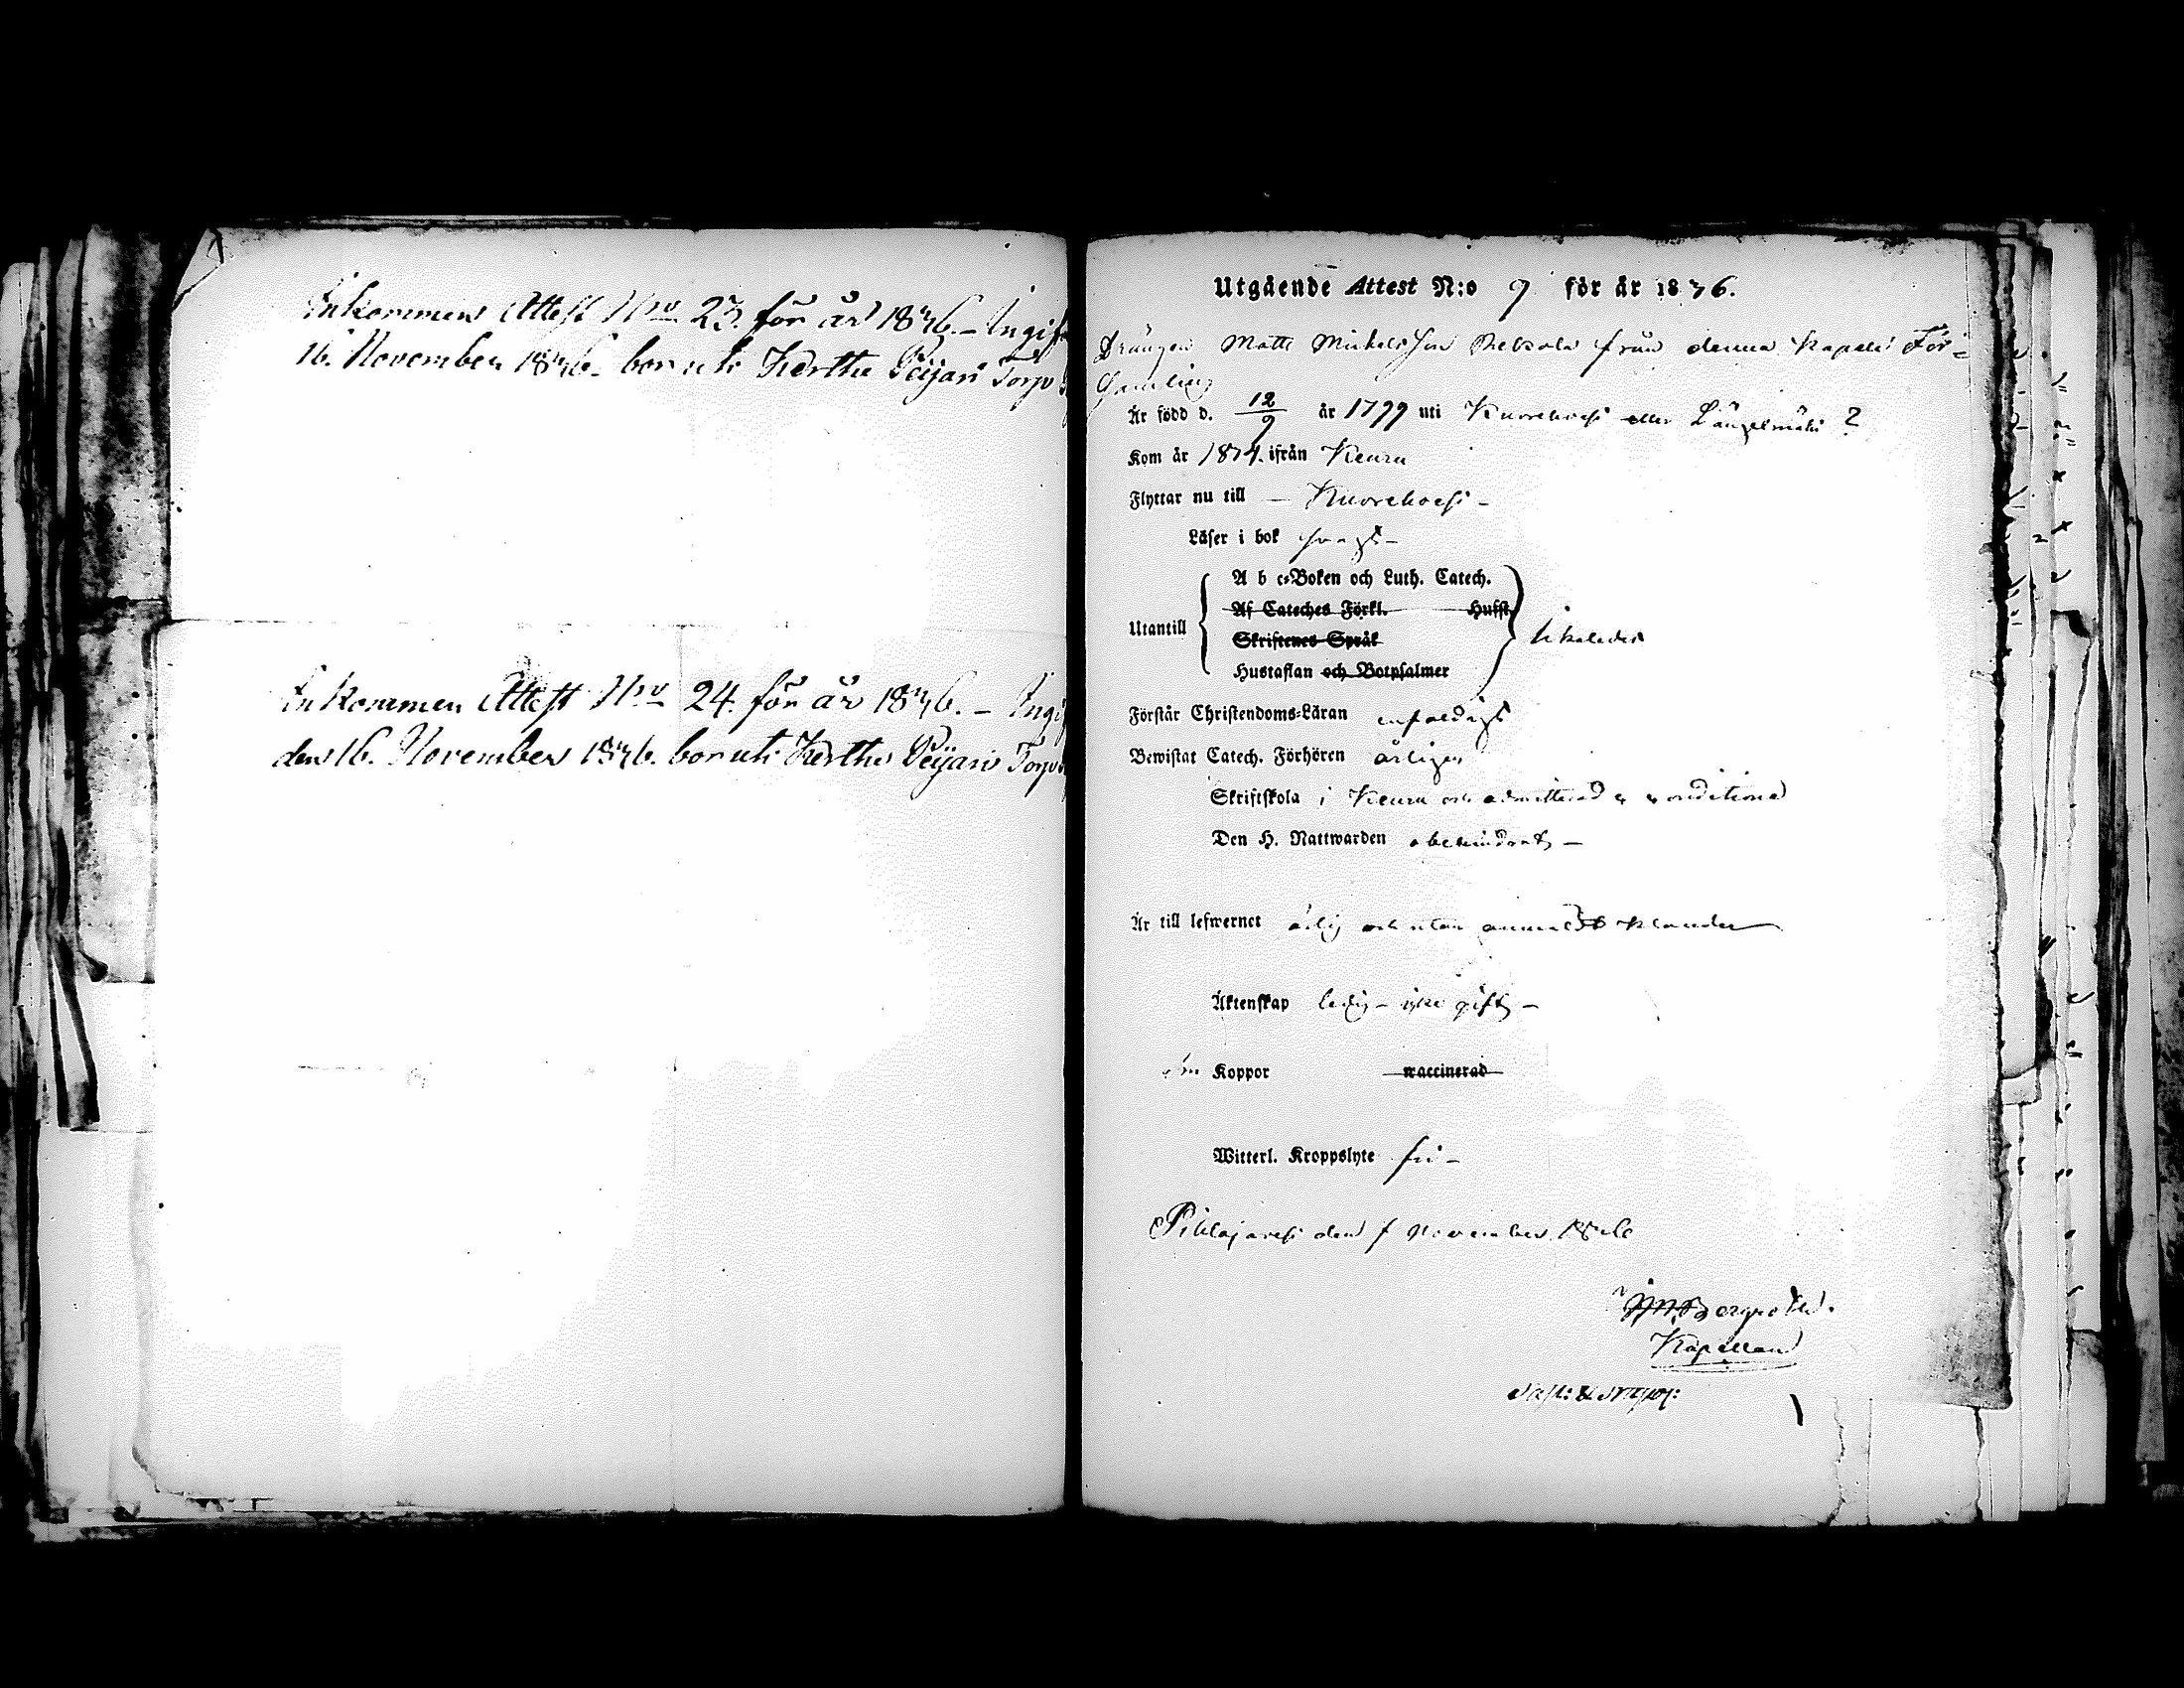 Inkommen Attest Nro 23. för år 1846. – Ingif
16. November 1846. bor uti Kertte Peijari Torp
Inkommen Attest Nro 24. för år 1846. – Ingif
den 16. November 1846. bor uti Kertte Peijari Torp
Utgående Attest N:o 9 för år 1846.
Drängen Matts Michelsson från denna Kapells För=
samling
Är född d. 12/9 år 1799 uti Kuorehvesi eller Längelmäki ?
Kom år ifrån Keuru
Flyttar nu till – Kuorehvesi –
Läser i bok svagt –
Utantill
A b c=Boken och Luth. Catech.
Af Cateches Förkl. Hufst.
Skriftenes Språk
Hustaflan och Botpsalmer
likaledes
Förstår Christendoms=Läran enfaldigt
Bewistat Catech. Förhören årligen
Skriftskola i Keuru och admitterad conditione
Den H. Nattwarden obehindrat –
Är till lefwernet ärlig och utan klander
Äktenskap ledig – icke gift –
Koppor waccinerad
Witterl. Kroppslyte fri –
Pihlajavesi den November 1846
Bergroth.
Kapellan